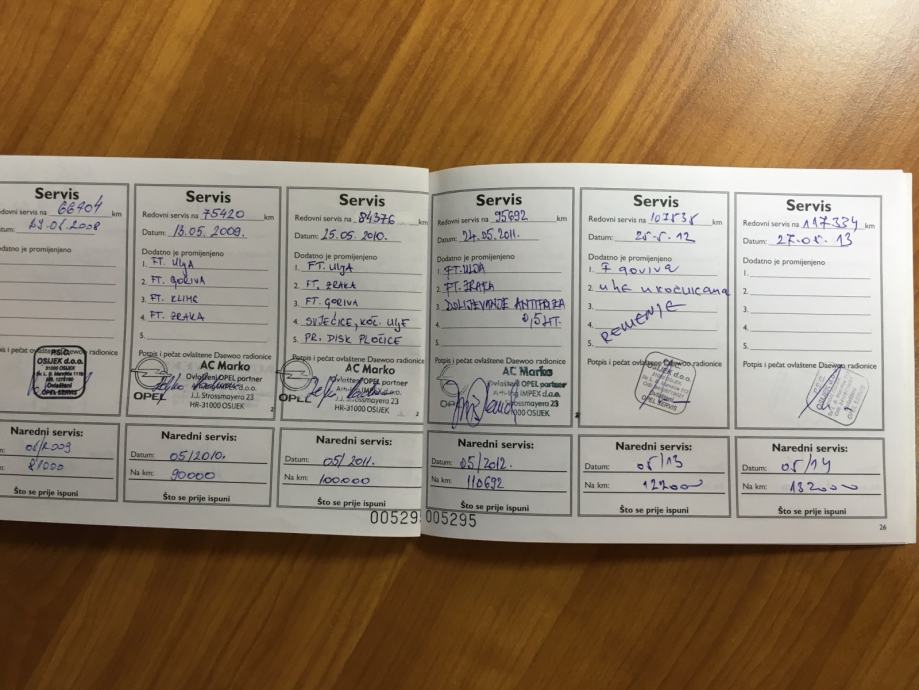 Servis
edovni servis na 66404 km
Datum: 2008
Dodatno je promijenjeno
pis i pečat ovlaštene Daewoo radionice
P.S.C.
OSIJEK d.o.o.
31000 OSIJEK
Ovlašteni
OPEL SERVIS
Naredni servis:
05/2009
81000
Što se prije ispuni
Servis
Redovni servis na 75420 km
Datum: 18.05.2009.
Dodatno je promijenjeno
1. FT. ULJA
2. FT. GORIVA
3. FT. KLIME
4. FT. ZRAKA
5.
Potpis i pečat ovlaštene Daewoo radionice
AC Marko
Ovlašteni OPEL partner
J.J. Strossmayera 23
HR-31000 OSIJEK
OPEL
Naredni servis:
Datum: 05/2010.
Na km: 90000
Što se prije ispuni
Servis
Redovni servis na 84376 km
Datum: 25.05.2010.
Dodatno je promijenjeno
1. FT. ULJA
2. FT. ZRAKA
3. FT. GORIVA
4. SVJEĆICE, KOČ. ULJE
5. PR. DISK PLOČICE
Potpis i pečat ovlaštene Daewoo radionice
AC Marko
Ovlašteni OPEL partner
J.J. Strossmayera 23
HR-31000 OSIJEK
OPEL
Naredni servis:
Datum: 05/2011.
Na km: 100.000
Što se prije ispuni
00529
Servis
Redovni servis na 95692 km
Datum: 24.05.2011.
Dodatno je promijenjeno
1. FT. ULJA
2. FT. ZRAKA
3. DOLIJEVANJE ANTIFRIZA
4. 0,5 LIT.
5.
Potpis i pečat ovlaštene Daewoo radionice
AC Marko
Ovlašteni OPEL partner
IMPEX d.o.o.
Strossmayera 23
000 OSIJEK
Naredni servis:
Datum: 05/2012.
Na km: 110692
Što se prije ispuni
005295
Servis
Redovni servis na 107838 km
Datum: 25-5-12
Dodatno je promijenjeno
1. F goriva
2. ulje u kočnicama
3.
4. REMENJE
5.
Potpis i pečat ovlaštene Daewoo radionice
OSIJEK d.o.o.
OPEL SERVIS
Naredni servis:
Datum: 05/13
Na km: 122000
Što se prije ispuni
Servis
Redovni servis na 117334 km
Datum: 27-05-13
Dodatno je promijenjeno
1.
2.
3.
4.
5.
Potpis i pečat ovlaštene Daewoo radionice
Naredni servis:
Datum: 05/14
Na km: 132000
Što se prije ispuni
26